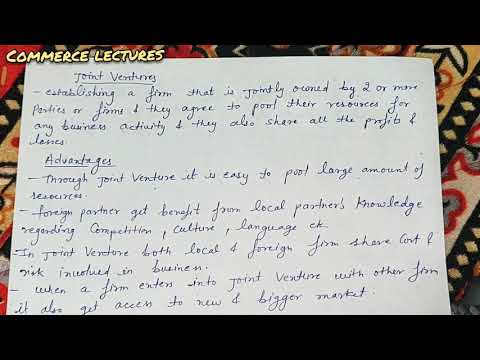 COMMERCE LECTURES
Joint Ventures
- establishing a firm that is jointly owned by 2 or more
Parties or firms & they agree to pool their resources for
any business activity & they also share all the profits &
losses.
Advantages
- Through Joint Venture it is easy to pool large amount of
resources.
- foreign partner get benefit from local partner's knowledge
regarding Competition, culture, language etc.
In Joint Venture both local & foreign firm share Cost &
risk involved in business.
- when a firm enters into Joint Venture with other firm
it also get access to new & bigger market.